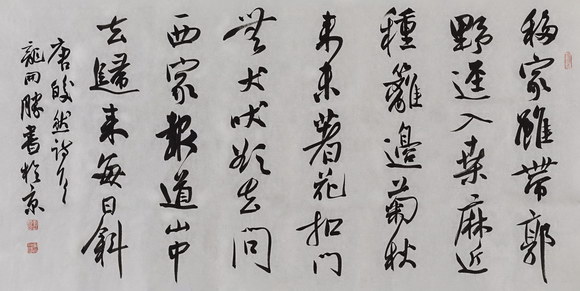 移家雖帶郭
野逕入桑麻近
種籬邊菊秋
来未著花扣門
無犬吠欲去問
西家報道山中
去歸来每日斜
唐皎然詩
龍開勝書於京